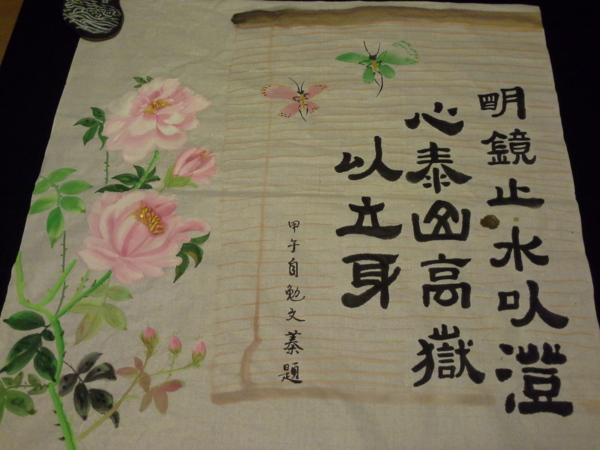 明鏡止水以澄
心泰山高嶽
以立身
甲午自勉文蓁題